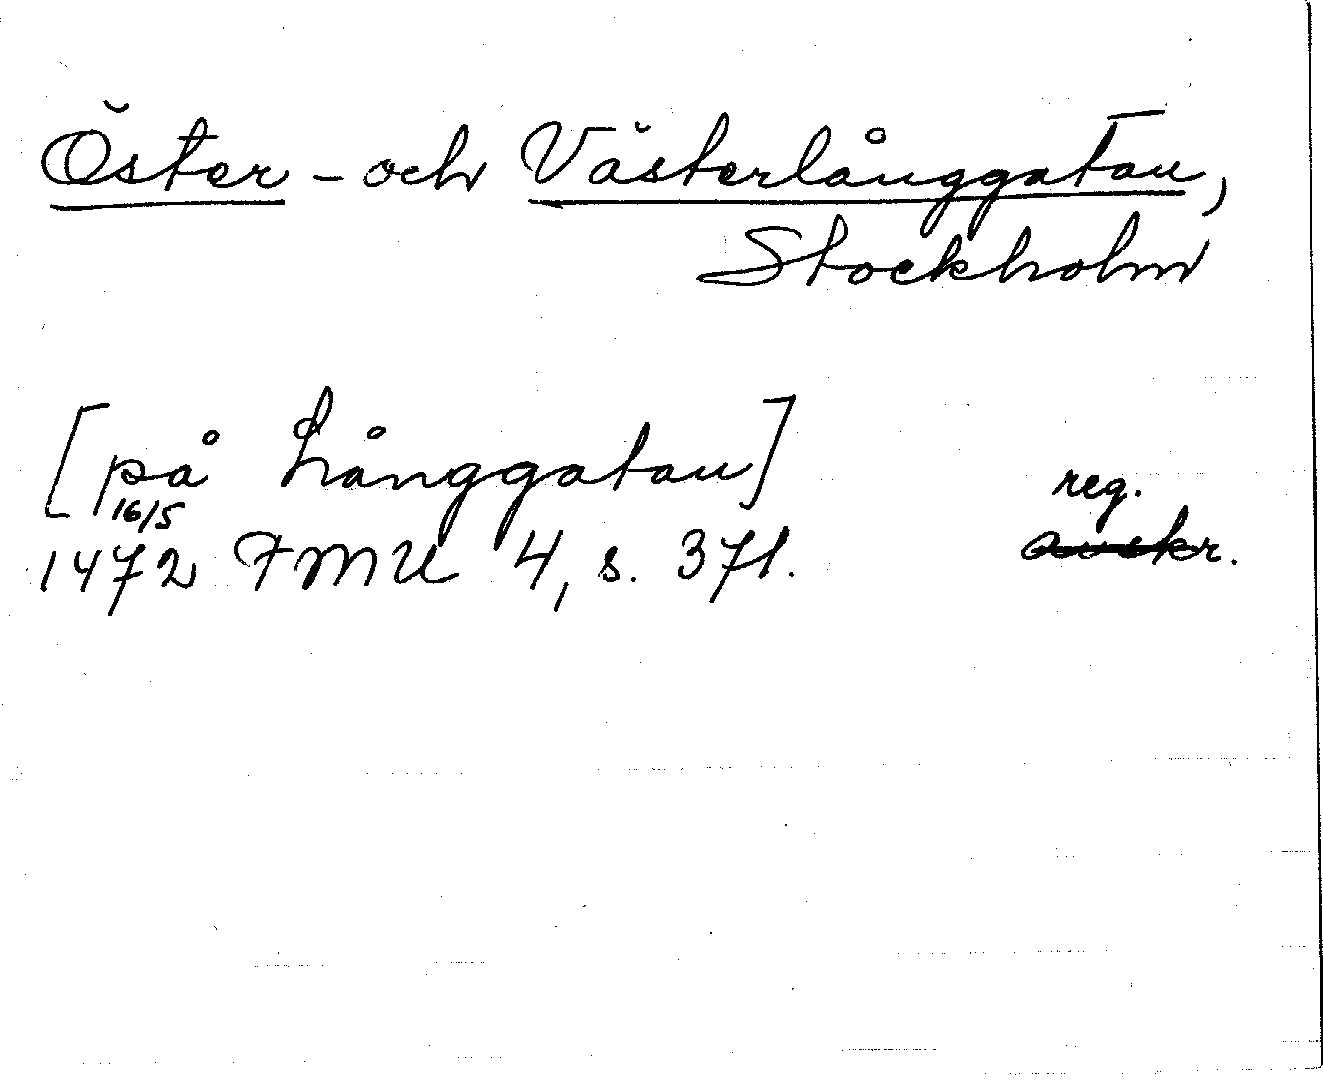 Öster- och Västerlånggatan,
Stockholm
[på Långgatan]
16/5
1472 FMU 4, s. 371.
reg.
avskr.